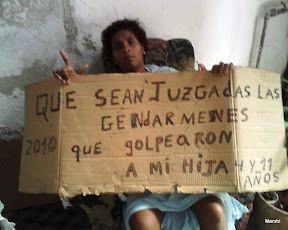 QUE SEAN JUZGADAS LAS
GENDARMENES
2010 que GOLPEARON
A MI HIJA 4 Y 11
AÑOS
Mambi